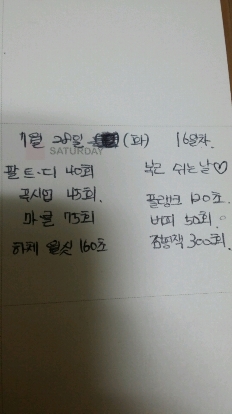 1월 28일 (화) 16일차
SATURDAY
팔 트·디 40회
복근 쉬는날♡
푸시업 45회.
플랭크 120초
마운 75회
버피 50회.
하체 월싯 160초
점핑잭 300회.